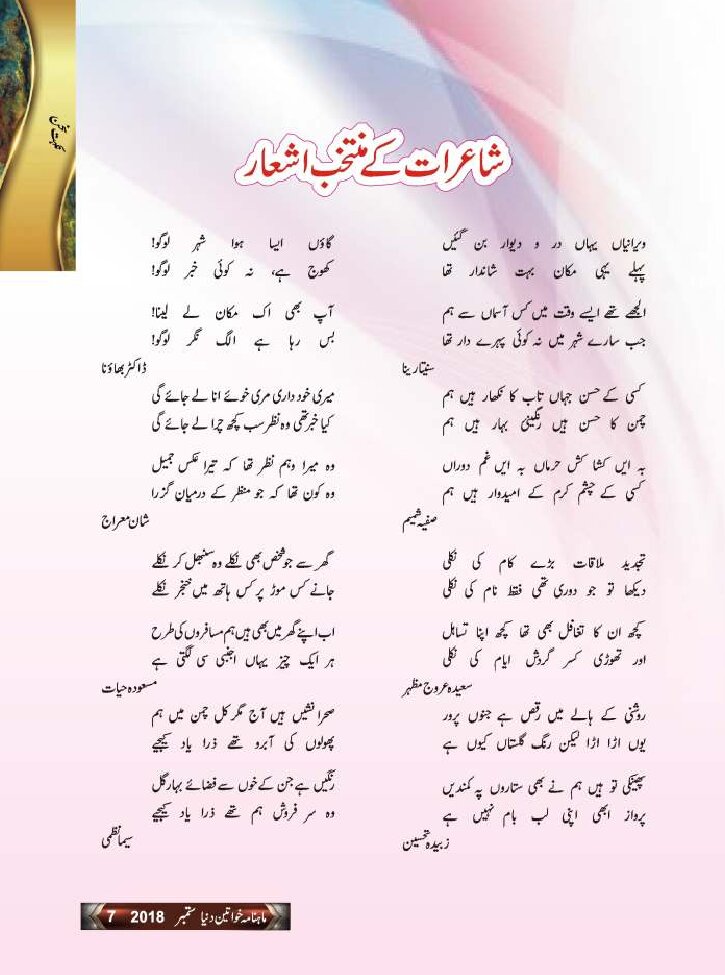 شاعرات کے منتخب اشعار
ویرانیاں یہاں در و دیوار بن گئیں
پہلے یہی مکان بہت شاندار تھا
الجھے تھے ایسے وقت میں کس آسماں سے ہم
جب سارے شہر میں نہ کوئی پہرے دار تھا
سنیتا رینا
کسی کے حسن جہاں تاب کا نکھار ہیں ہم
چمن کا حسن ہیں رنگینی بہار ہیں ہم
بہ ایں کشا کش حرماں بہ ایں غم دوراں
کسی کے چشم کرم کے امیدوار ہیں ہم
صفیہ شمیم
تجدید ملاقات بڑے کام کی نکلی
دیکھا تو جو دوری تھی فقط نام کی نکلی
کچھ ان کا تغافل بھی تھا کچھ اپنا تساہل
اور تھوڑی کسر گردش ایام کی نکلی
سعیدہ عروج مظہر
روشنی کے ہالے میں رقص ہے جنوں پرور
یوں اڑا اڑا لیکن رنگ گلستاں کیوں ہے
پھینکی تو ہیں ہم نے بھی ستاروں پہ کمندیں
پرواز ابھی اپنی لب بام نہیں ہے
زبیدہ تحسین
گاؤں ایسا ہوا شہر لوگو!
کھوج ہے، نہ کوئی خبر لوگو!
آپ بھی اک مکان لے لینا!
بس رہا ہے الگ نگر لوگو!
ڈاکٹر بھاؤنا
میری خودداری مری خوئے انا لے جائے گی
کیا خبر تھی وہ نظر سب کچھ چرا لے جائے گی
وہ میرا وہم نظر تھا کہ تیرا عکس جمیل
وہ کون تھا کہ جو منظر کے درمیان گزرا
شان معراج
گھر سے جو شخص بھی نکلے وہ سنبھل کر نکلے
جانے کس موڑ پر کس ہاتھ میں خنجر نکلے
اب اپنے گھر میں بھی ہیں ہم مسافروں کی طرح
ہر ایک چیز یہاں اجنبی سی لگتی ہے
مسعودہ حیات
صحرا نشیں ہیں آج مگر کل چمن میں ہم
پھولوں کی آبرو تھے ذرا یاد کیجیے
رنگیں ہے جن کے خوں سے فضائے بہار گل
وہ سر فروش ہم تھے ذرا یاد کیجیے
سیما نظمی
ماہنامہ خواتین دنیا ستمبر 2018 7